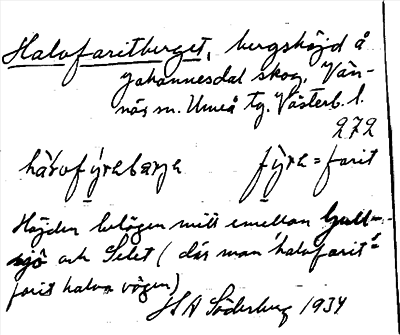 Halvfaritberget, bergshöjd å
Johannesdal skog, Vän-
näs sn. Umeå tg. Västerb. l.
272
hà̀rofýrebærje fýre = farit
Höjden belägen mitt emellan Gull-
sjö och Selet (där man "halvfarit"=
farit halva vägen)
H A Söderberg 1934